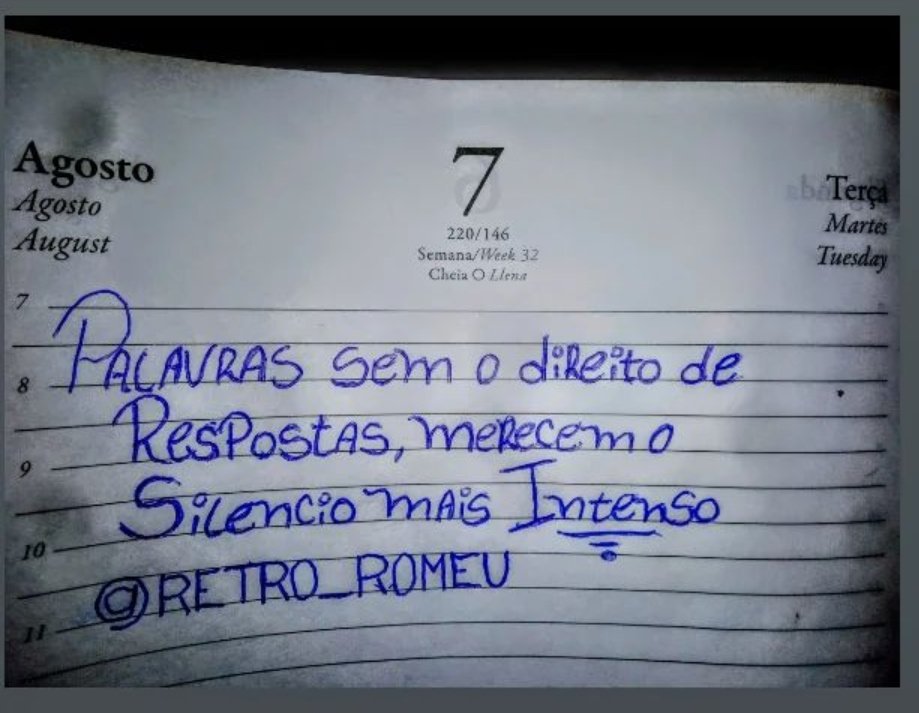 Agosto
Agosto
August
7
220/146
Semana/Week 32
Cheia O Llena
Terça
Martes
Tuesday
7
8
9
10
11
PALAVRAS sem o diReito de
ResPostAs, meRecem o
Silencio mAis Intenso
@RETRO_ROMEU